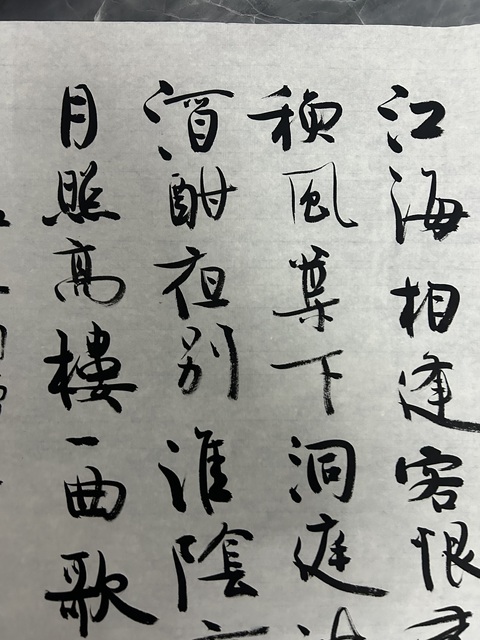 江海相逢客恨
秋風葉下洞庭
酒酣夜別淮陰
月照高樓一曲歌